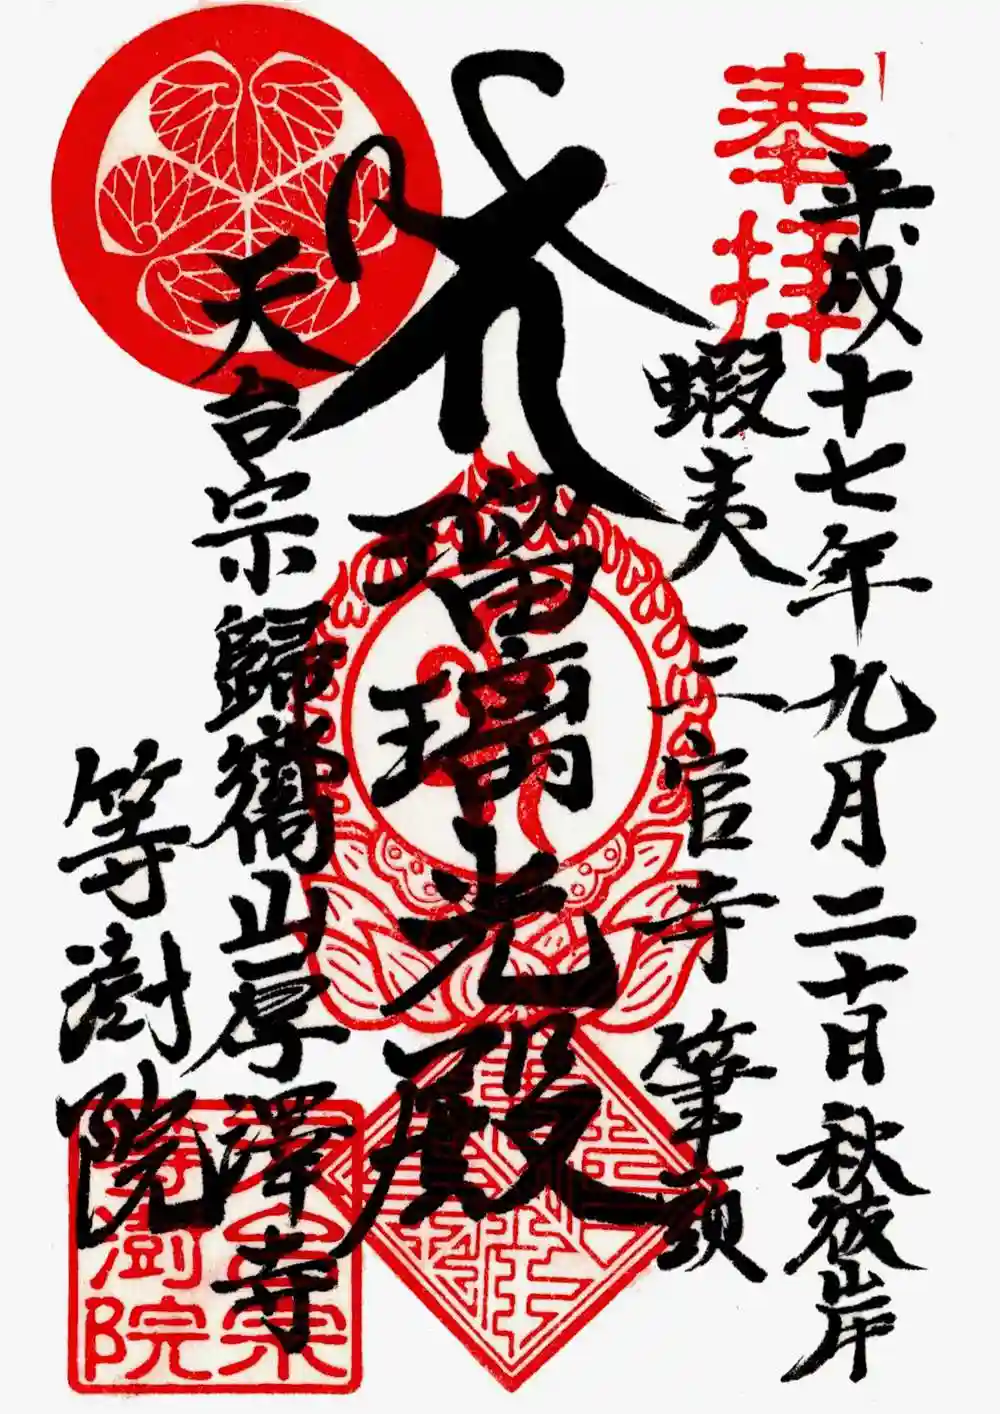 奉拝
平成十七年九月二十日 秋彼岸
蝦夷三官寺筆頭
瑠璃光殿
天台宗歸嚮山厚澤寺
等澍院
天台宗
等澍院